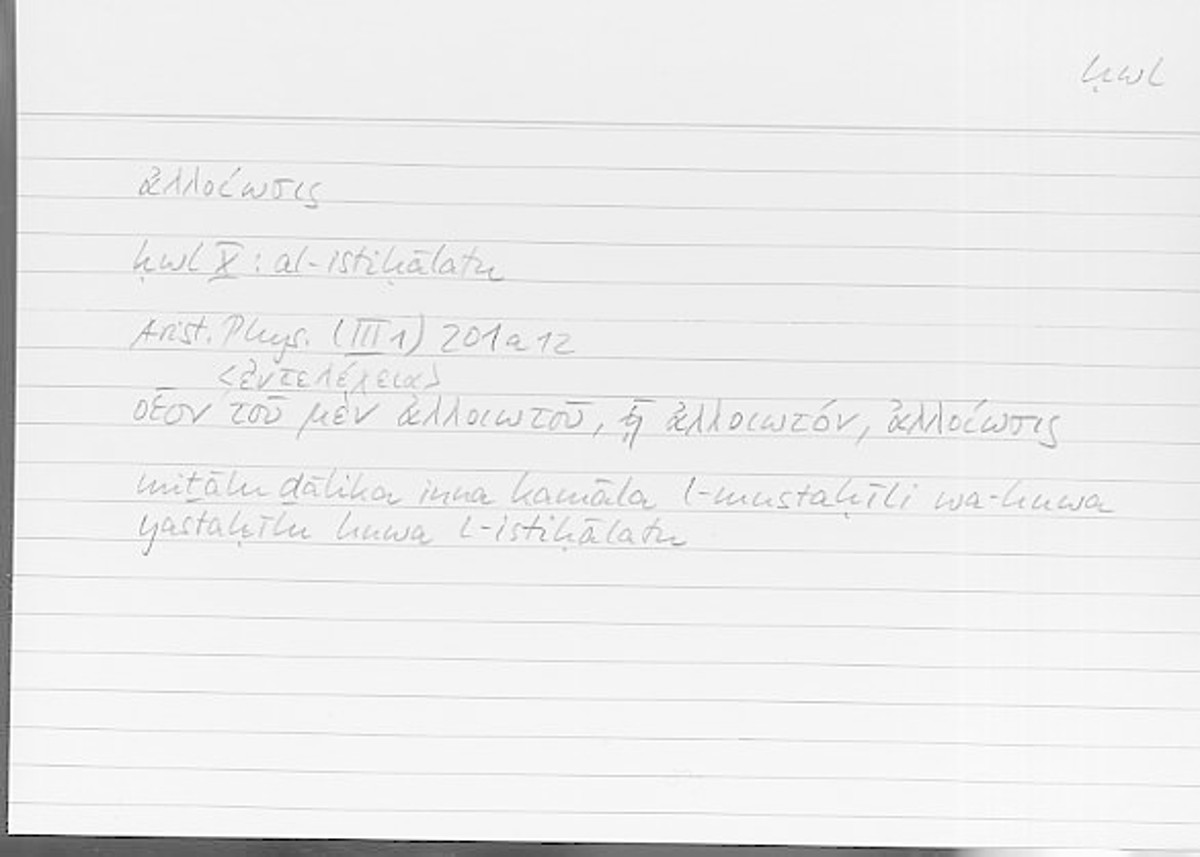 ḥwl
ἀλλοίωσις
ḥwl X: al-istiḥālatu
Arist. Phys. (III 1) 201a12
<ἐντελέχεια>
οἷον τοῦ μὲν ἀλλοιωτοῦ, ᾗ ἀλλοιωτόν, ἀλλοίωσις
miṯālu ḏālika inna kamāla l-mustaḥīli wa-huwa
yastaḥīlu huwa l-istiḥālatu